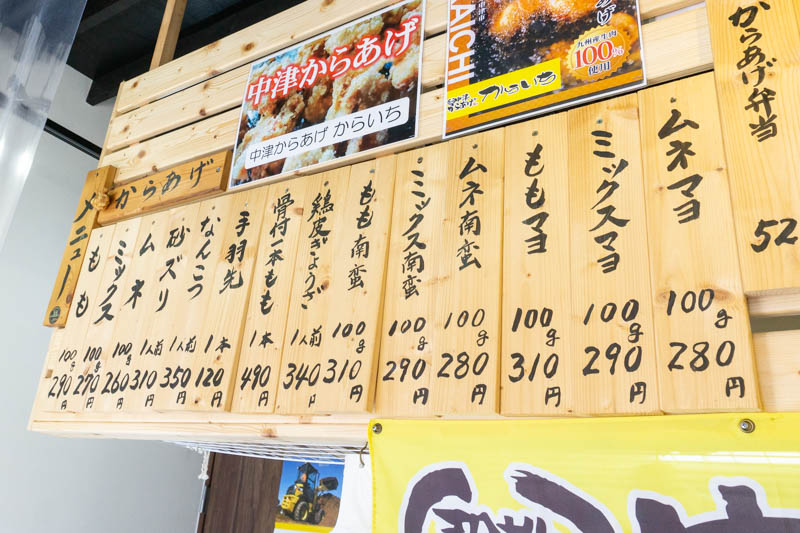 中津からあげ
中津からあげ からいち
AICHI
九州産生肉
100%
使用
からいち
からあげ
メニュー
もも
100g
290円
ミックス
100g
270円
ムネ
100g
260円
砂ズリ
1人前
310円
なんこつ
1人前
350円
手羽先
1本
120円
骨付一本もも
1本
490円
鶏皮ぎょうざ
1人前
340円
もも南蛮
100g
310円
ミックス南蛮
100g
290円
ムネ南蛮
100g
280円
ももマヨ
100g
310円
ミックスマヨ
100g
290円
ムネマヨ
100g
280円
からあげ弁当
52